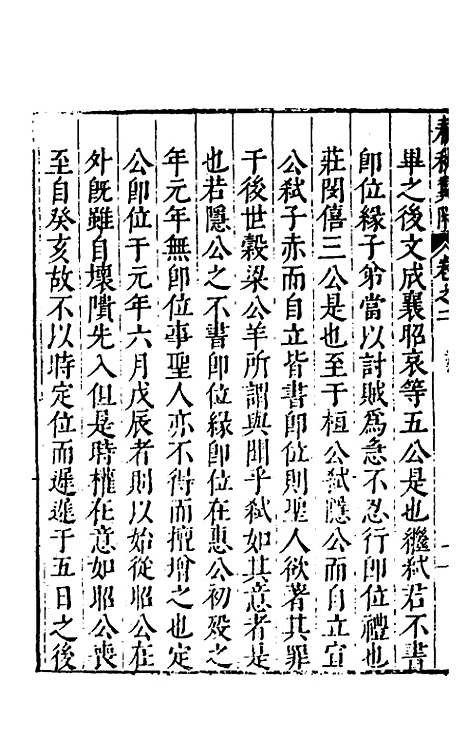 畢之後文成襄昭哀等五公是也繼弒若不書
卽位緣子弟當以討賊為急不忍行卽位禮也
莊閔僖三公是也至于桓公弒隱公而自立宣
公弒子赤而自立皆書卽位則聖人欲著其罪
于後世穀梁公羊所謂與聞乎弒如其意者是
也若隱公之不書卽位緣卽位在惠公初歿之
年元年無卽位事聖人亦不得而擅增之也定
公卽位于元年六月戊辰者則以始從昭公在
外旣雖自壞隤先入但是時權在意如昭公喪
至自癸亥故不以時定位而遲遲于五日之後